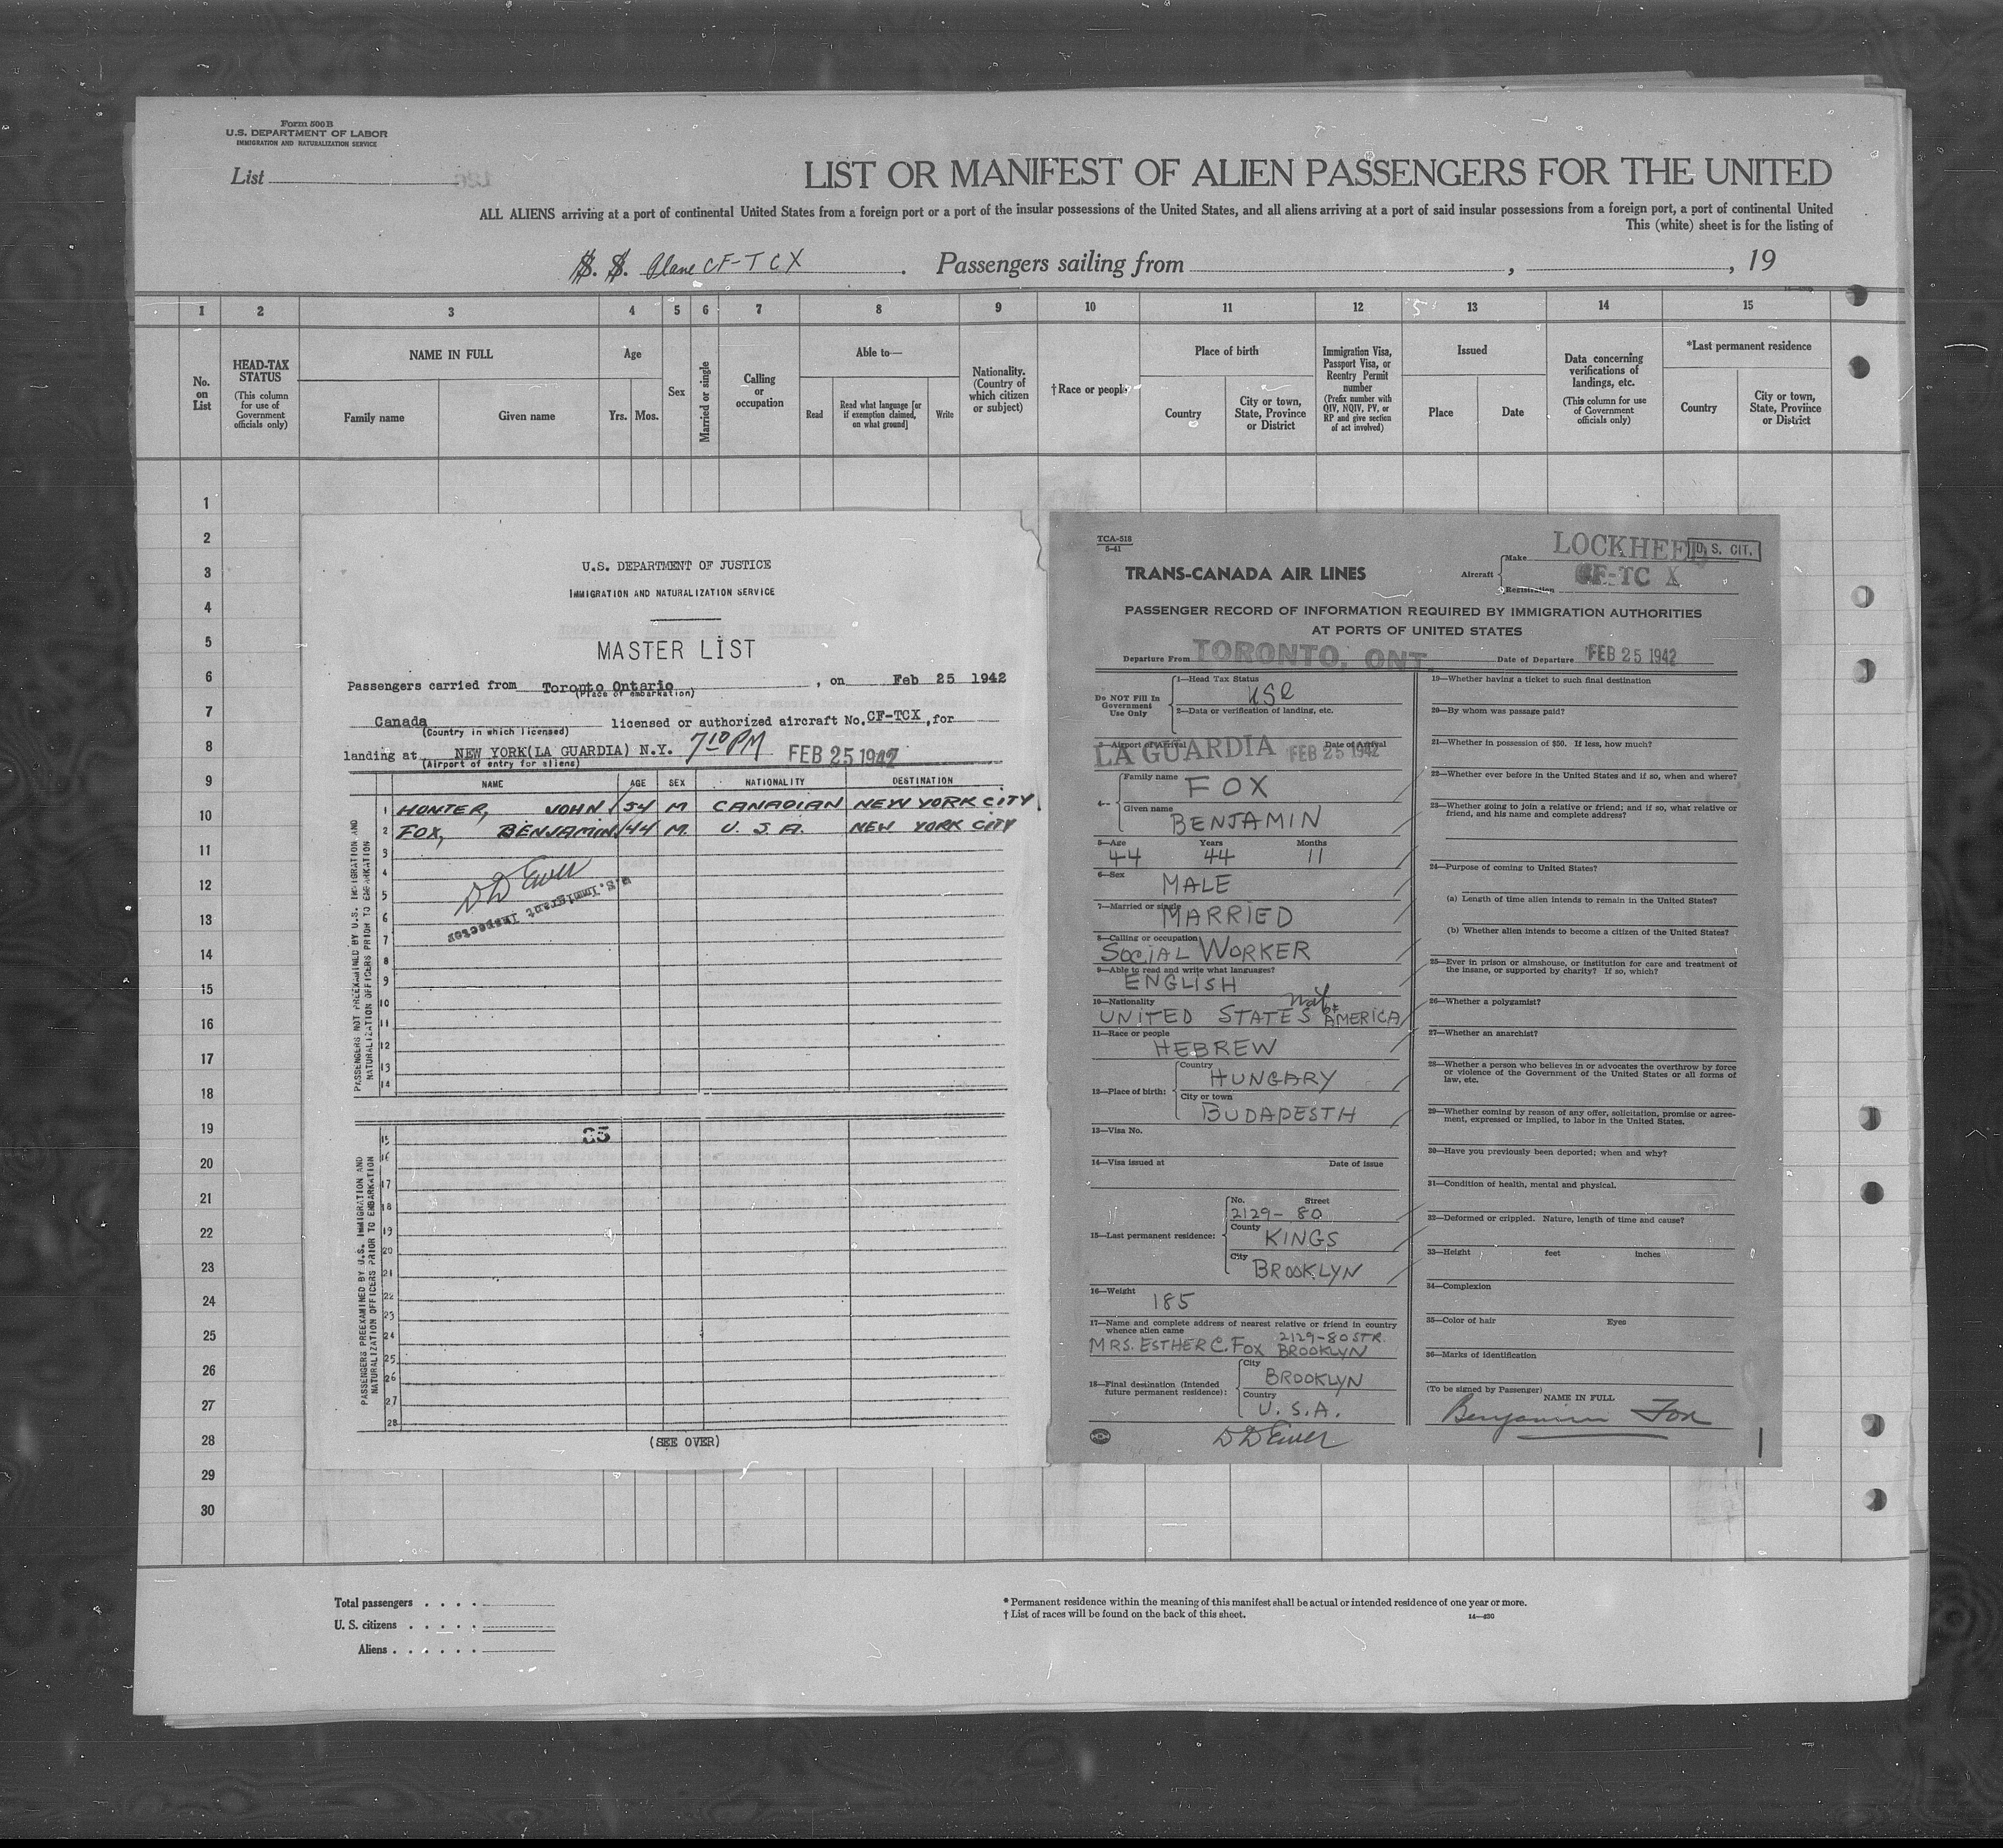 Form 500 B
U.S. DEPARTMENT OF LABOR
IMMIGRATION AND NATURALIZATION SERVICE
List
LIST OR MANIFEST OF ALIEN PASSENGERS FOR THE UNITED
ALL ALIENS arriving at a port of continental United States from a foreign port or a port of the insular possessions of the United States, and all aliens arriving at a port of said insular possessions from a foreign port, a port of continental United
This (white) sheet is for the listing of
S. S. Plane CF-TCX . Passengers sailing from , , 19
1 2 3 4 5 6 7 8 9 10 11 12 13 14 15
No. on List
HEAD-TAX STATUS (This column for use of Government officials only)
NAME IN FULL
Family name
Given name
Age
Yrs. Mos.
Sex
Married or single
Calling or occupation
Able to—
Read
Read what language [or if exemption claimed, on what ground]
Write
Nationality. (Country of which citizen or subject)
†Race or people
Place of birth
Country
City or town, State, Province or District
Immigration Visa, Passport Visa, or Reentry Permit number (Prefix number with QIV, NQIV, PV, or RP and give section of act involved)
Issued
Place
Date
Data concerning verifications of landings, etc. (This column for use of Government officials only)
*Last permanent residence
Country
City or town, State, Province or District
1
2
3
4
5
6
7
8
9
10
11
12
13
14
15
16
17
18
19
20
21
22
23
24
25
26
27
28
29
30
U.S. DEPARTMENT OF JUSTICE
IMMIGRATION AND NATURALIZATION SERVICE
MASTER LIST
Passengers carried from Toronto Ontario , on Feb 25 1942
(Place of embarkation)
Canada licensed or authorized aircraft No. CF-TCX, for
(Country in which licensed)
landing at NEW YORK(LA GUARDIA) N.Y. 7 10 PM FEB 25 1942
(Airport of entry for aliens)
NAME AGE SEX NATIONALITY DESTINATION
1 HUNTER, JOHN 54 M CANADIAN NEW YORK CITY
2 FOX, BENJAMIN 44 M. U. S. A. NEW YORK CITY
3
4
5
6
7
8
9
10
11
12
13
14
D D Ewer
U.S. Immigrant Inspector
PASSENGERS NOT PREEXAMINED BY U.S. IMMIGRATION AND NATURALIZATION OFFICERS PRIOR TO EMBARKATION
85
15
16
17
18
19
20
21
22
23
24
25
26
27
28
PASSENGERS PREEXAMINED BY U.S. IMMIGRATION AND NATURALIZATION OFFICERS PRIOR TO EMBARKATION
(SEE OVER)
TCA-518
5-41
TRANS-CANADA AIR LINES
Aircraft
Make LOCKHEED
U. S. CIT.
Registration CF-TC X
PASSENGER RECORD OF INFORMATION REQUIRED BY IMMIGRATION AUTHORITIES
AT PORTS OF UNITED STATES
Departure From TORONTO, ONT. Date of Departure FEB 25 1942
Do NOT Fill In Government Use Only
1—Head Tax Status
USR
2—Data or verification of landing, etc.
3—Airport of Arrival Date of Arrival
LA GUARDIA FEB 25 1942
4— Family name
FOX
Given name
BENJAMIN
5—Age Years Months
44 44 11
6—Sex
MALE
7—Married or single
MARRIED
8—Calling or occupation
SOCIAL WORKER
9—Able to read and write what languages?
ENGLISH
10—Nationality
nat
UNITED STATES OF AMERICA
11—Race or people
HEBREW
12—Place of birth:
Country
HUNGARY
City or town
BUDAPESTH
13—Visa No.
14—Visa issued at Date of issue
15—Last permanent residence:
No. Street
2129 - 80
County
KINGS
City
BROOKLYN
16—Weight
185
17—Name and complete address of nearest relative or friend in country whence alien came
MRS. ESTHER C. FOX 2129-80 STR. BROOKLYN
18—Final destination (Intended future permanent residence):
City
BROOKLYN
Country
U. S. A.
D D Ewer
19—Whether having a ticket to such final destination
20—By whom was passage paid?
21—Whether in possession of $50. If less, how much?
22—Whether ever before in the United States and if so, when and where?
23—Whether going to join a relative or friend; and if so, what relative or friend, and his name and complete address?
24—Purpose of coming to United States?
(a) Length of time alien intends to remain in the United States?
(b) Whether alien intends to become a citizen of the United States?
25—Ever in prison or almshouse, or institution for care and treatment of the insane, or supported by charity? If so, which?
26—Whether a polygamist?
27—Whether an anarchist?
28—Whether a person who believes in or advocates the overthrow by force or violence of the Government of the United States or all forms of law, etc.
29—Whether coming by reason of any offer, solicitation, promise or agreement, expressed or implied, to labor in the United States.
30—Have you previously been deported; when and why?
31—Condition of health, mental and physical.
32—Deformed or crippled. Nature, length of time and cause?
33—Height feet inches
34—Complexion
35—Color of hair Eyes
36—Marks of identification
(To be signed by Passenger)
NAME IN FULL
Benjamin Fox
Total passengers
U. S. citizens
Aliens
* Permanent residence within the meaning of this manifest shall be actual or intended residence of one year or more.
† List of races will be found on the back of this sheet.
14—430